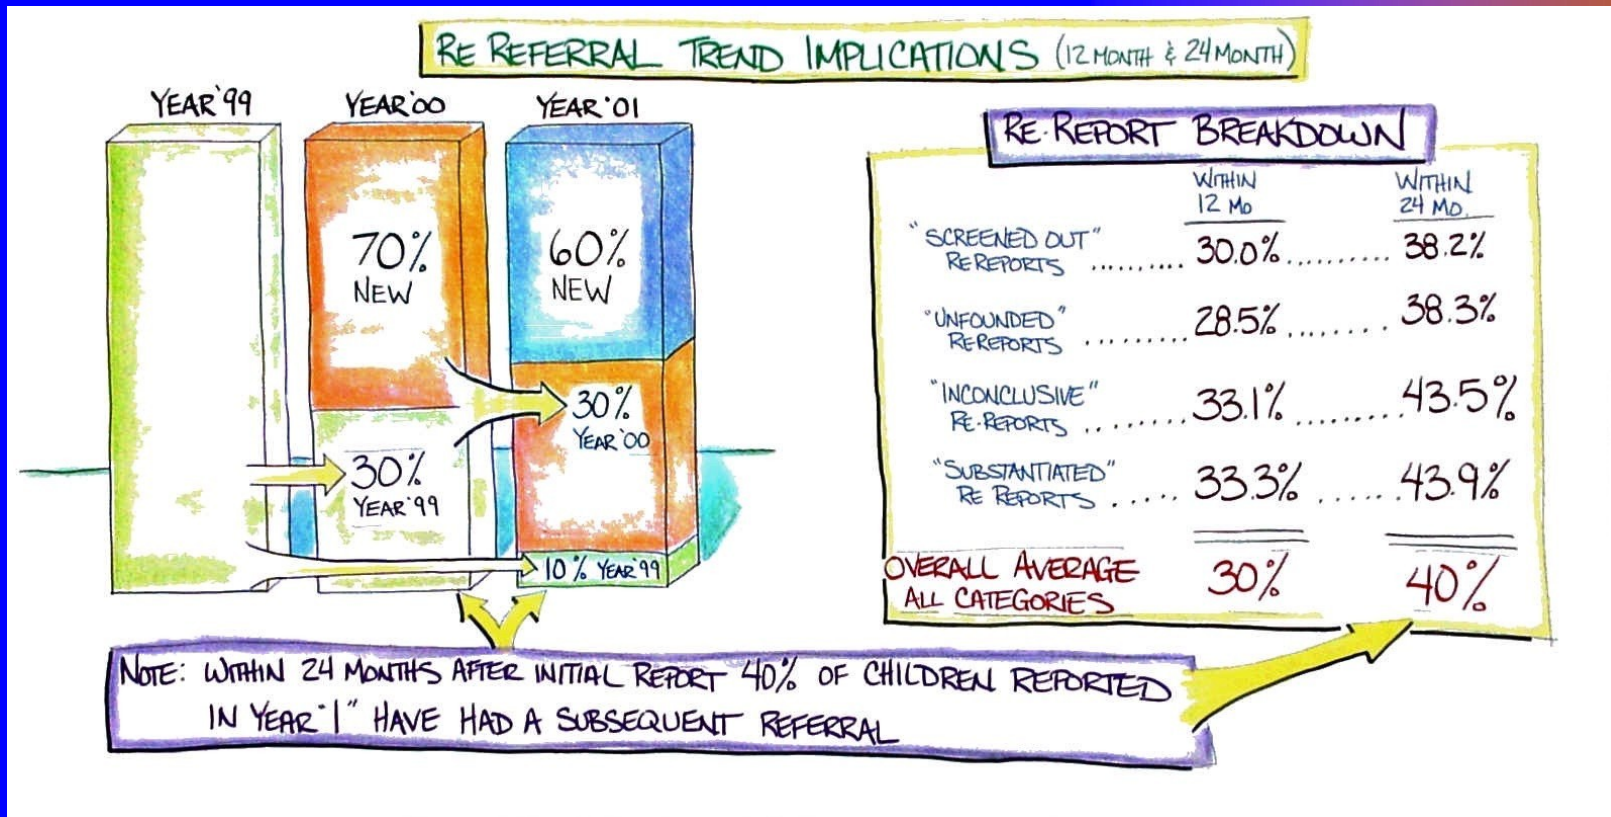 RE REFERRAL TREND IMPLICATIONS (12 MONTH & 24 MONTH)
YEAR '99
YEAR '00
YEAR '01
70%
NEW
60%
NEW
30%
YEAR '00
30%
YEAR '99
10% YEAR '99
RE-REPORT BREAKDOWN
WITHIN
12 MO
WITHIN
24 MO.
"SCREENED OUT"
REREPORTS .......... 30.0% .......... 38.2%
"UNFOUNDED"
REREPORTS ......... 28.5% ........ 38.3%
"INCONCLUSIVE"
RE-REPORTS ....... 33.1% ........ 43.5%
"SUBSTANTIATED"
RE REPORTS ..... 33.3% ...... 43.9%
OVERALL AVERAGE
ALL CATEGORIES
30%
40%
NOTE: WITHIN 24 MONTHS AFTER INITIAL REPORT 40% OF CHILDREN REPORTED
IN YEAR "1" HAVE HAD A SUBSEQUENT REFERRAL